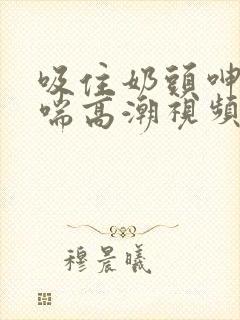 吸住奶頭呻
喘高潮視頻
穆晨曦